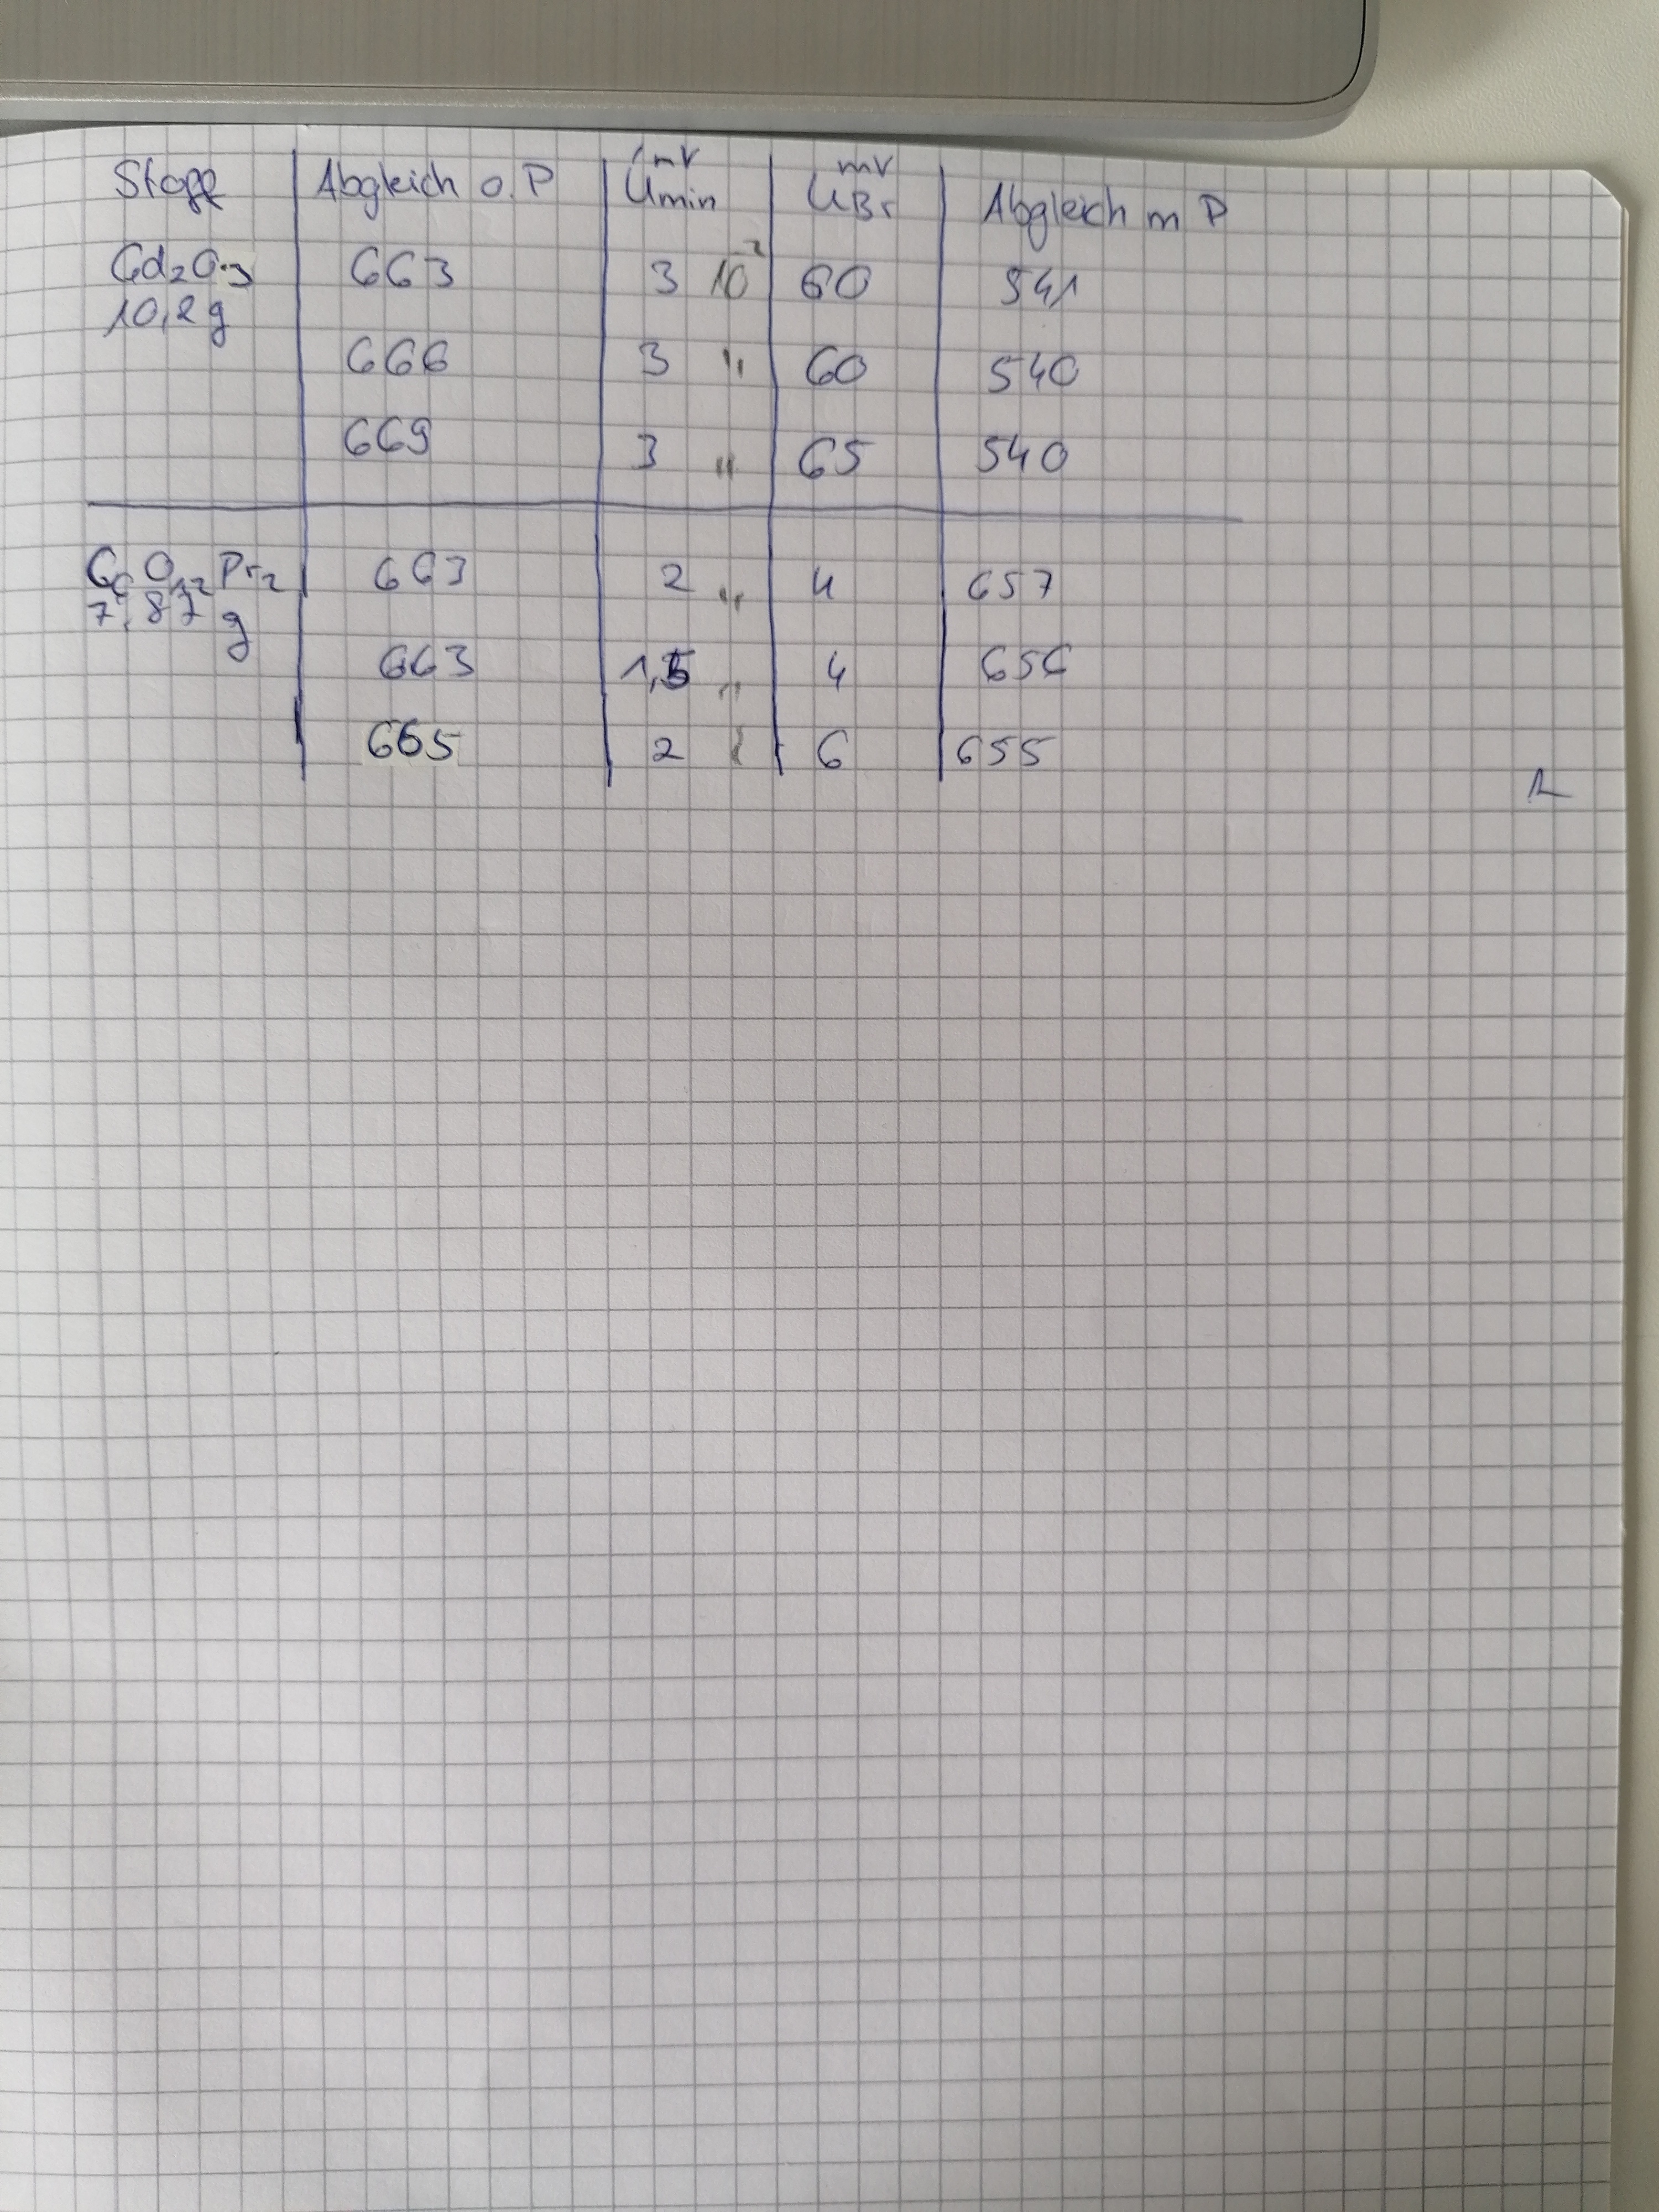 Stoff | Abgleich o. P | mV Umin | mV UBr | Abgleich m P
Gd₂O₃ 10,2g | 663 | 3 10² | 60 | 541
666 | 3 " | 60 | 540
669 | 3 " | 65 | 540
C₆O₁₂Pr₂ 7,87 g | 663 | 2 " | 4 | 657
663 | 1,5 " | 4 | 656
665 | 2 | 6 | 655